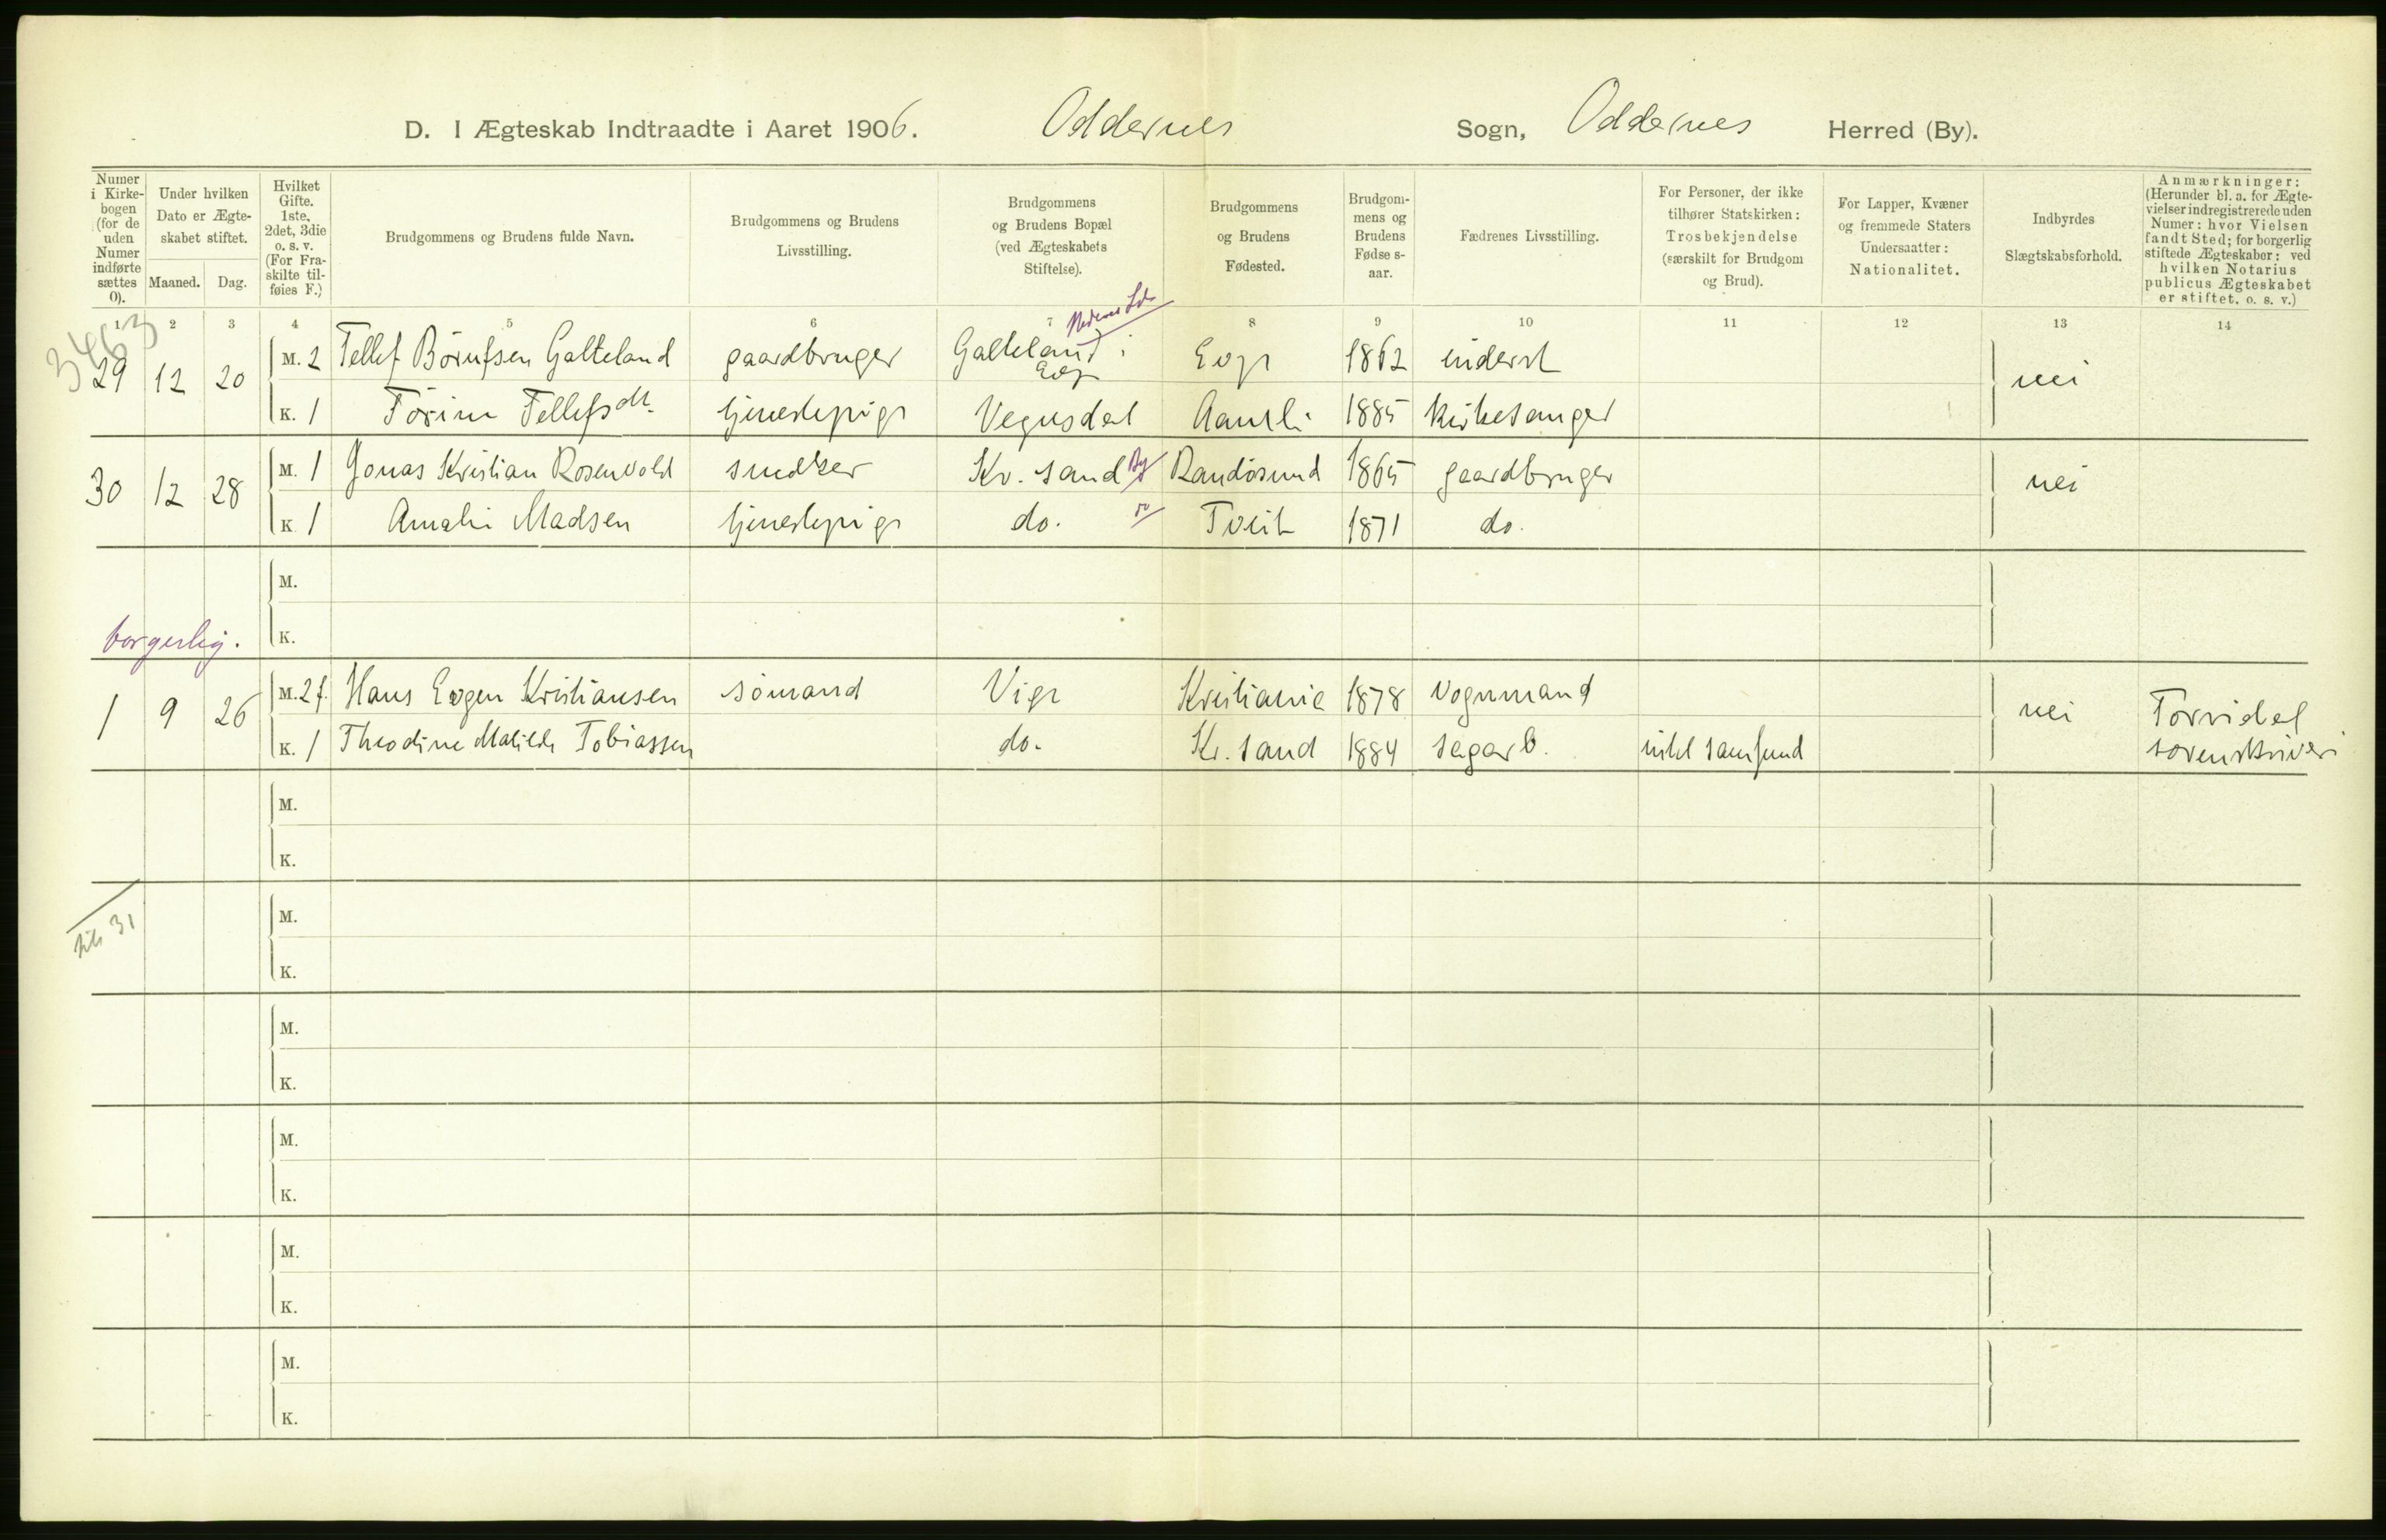 D. I Ægteskab Indtraadte i Aaret 1906. Oddernes Sogn, Oddernes Herred (By).
Numer i Kirke-bogen (for de uden Numer indførte sættes 0).
Under hvilken Dato er Ægte-skabet stiftet.
Maaned. Dag.
Hvilket Gifte. 1ste, 2det, 3die o. s. v. (For Fra-skilte til-føies F.)
Brudgommens og Brudens fulde Navn.
Brudgommens og Brudens Livsstilling.
Brudgommens og Brudens Bopæl (ved Ægteskabets Stiftelse).
Brudgommens og Brudens Fødested.
Brudgom-mens og Brudens Fødse s-aar.
Fædrenes Livsstilling.
For Personer, der ikke tilhører Statskirken: Trosbekjendelse (særskilt for Brudgom og Brud).
For Lapper, Kvæner og fremmede Staters Undersaatter: Nationalitet.
Indbyrdes Slægtskabsforhold.
Anmærkninger: (Herunder bl. a. for Ægte-vielser indregistrerede uden Numer: hvor Vielsen fandt Sted; for borgerlig stiftede Ægteskaber: ved hvilken Notarius publicus Ægteskabet er stiftet. o. s. v.)
1 2 3 4 5 6 7 8 9 10 11 12 13 14
3463
29 12 20 M. 2 Tellef Börufsen Galteland gaardbruger Galteland i Evje Evje 1862 inderst nei
K. 1 Törine Tellefsdt. tjenestepige Vegusdal Aamli 1885 kirkesanger
30 12 28 M. 1 Jonas Kristian Rosenvold snedker Kr. sand By Randösund 1865 gaardbruger nei
K 1 Amalie Madsen tjenestepige do. do Tveit 1871 do.
M.
borgerlig. K.
1 9 26 M. 2 f. Hans Eugen Kristiansen sömand Vige Kristiania 1878 vognmand nei Torridal
K. 1 Theodine Matilde Tobiassen do. Kr. sand 1884 sagarb. intet samfund sorenskriveri
M.
K.
M.
tils 31
K.
M.
K.
M.
K.
M.
K.
M.
K.